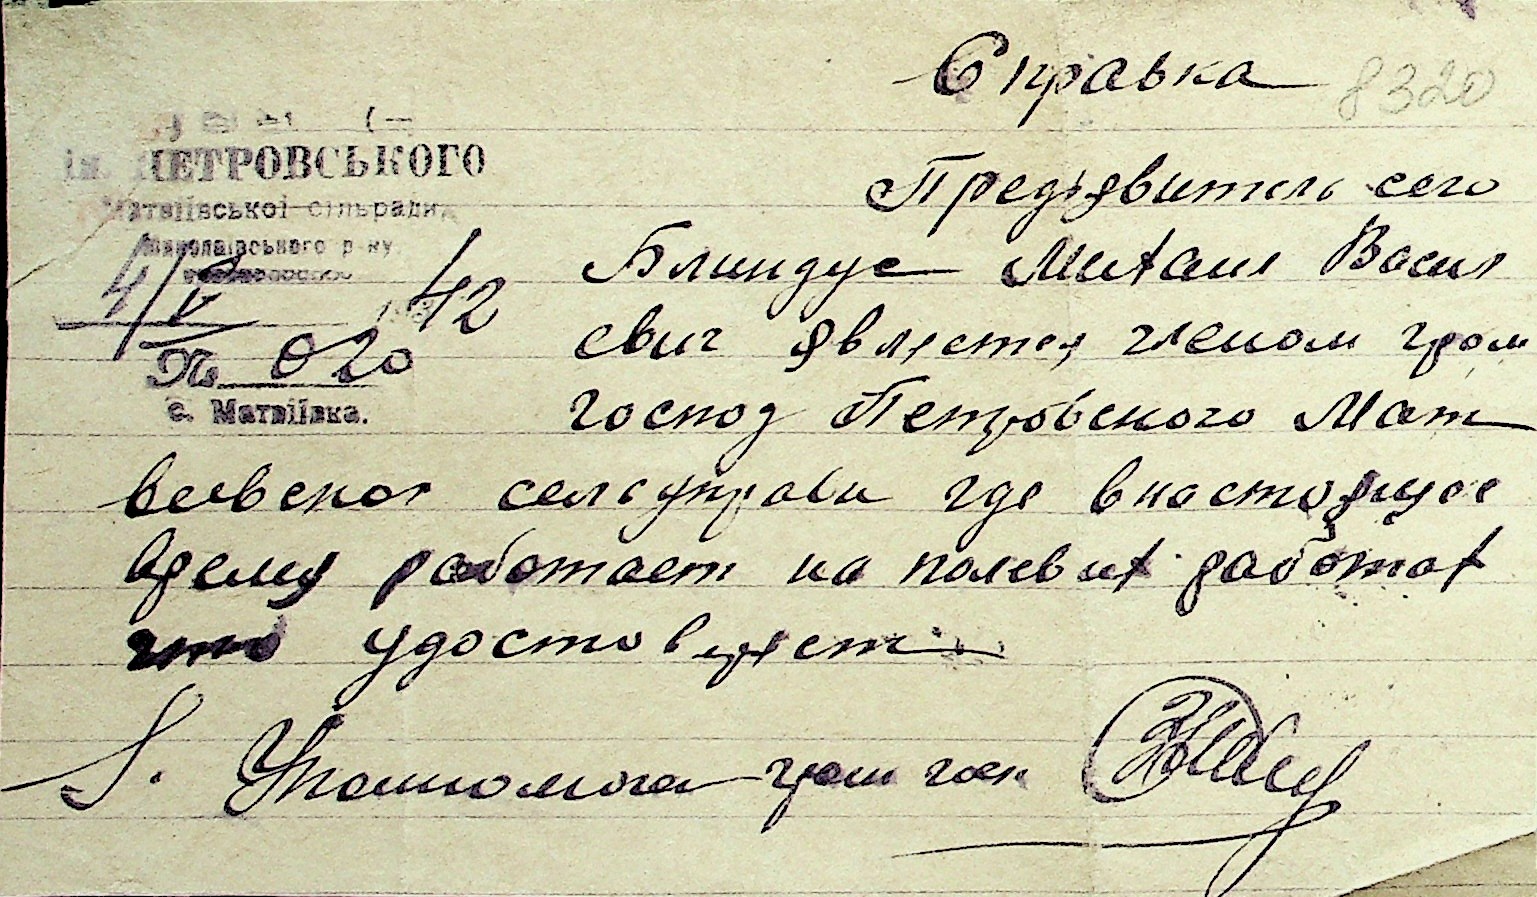 Справка
8320
ім. ПЕТРОВСЬКОГО
Матвіївської сільради
Миколаївського р-ку
4/V 42
№ 020
с. Матвіївка.
Предъявитель сего
Блиндус Михаил Васил
евич является членом гром
господ Петровского Мат
веевской селсуправи где внастоящее
время работает на полевих работах
что удостоверяет
Упаиномоча гром госп